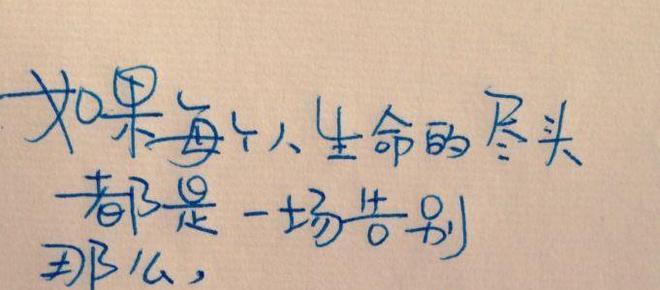 如果每个人生命的尽头
都是一场告别
那么，